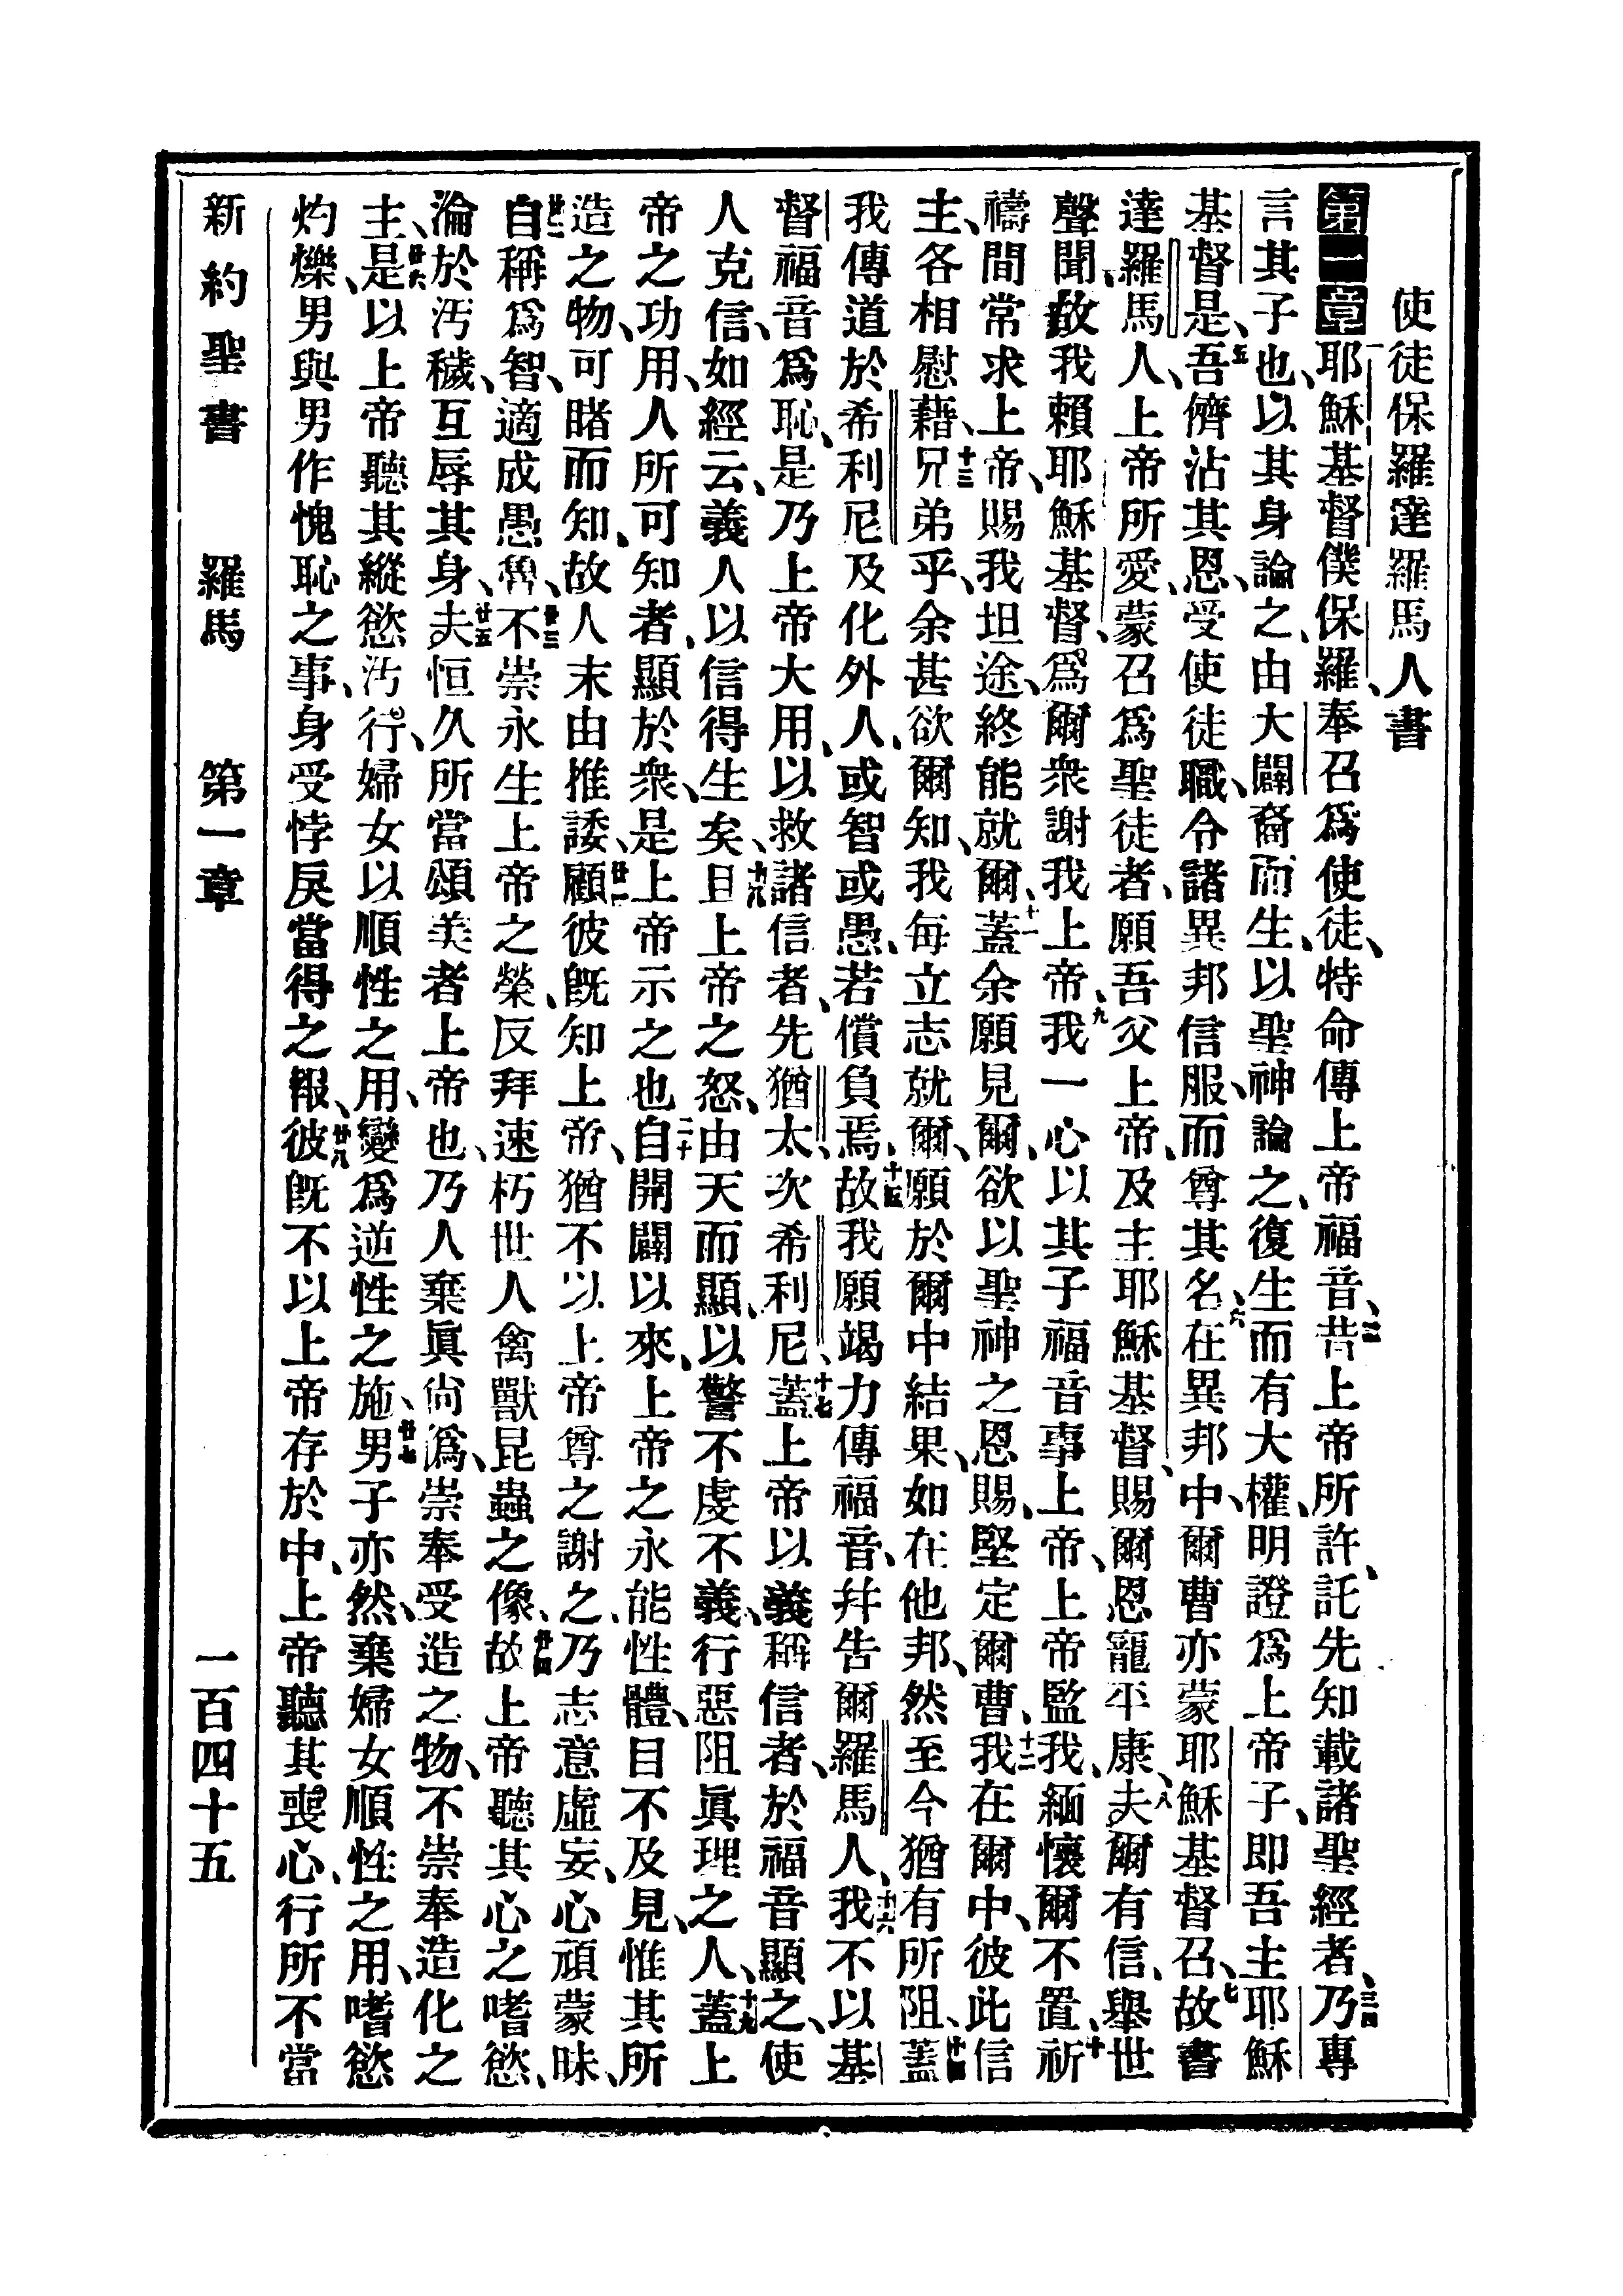 使徒保羅達羅馬人書
第一章一耶穌基督僕保羅、奉召爲使徒、特命傳上帝福音、二昔上帝所許、託先知載諸聖經者、三四乃專
言其子也、以其身論之、由大闢裔而生、以聖神論之、復生而有大權、明證爲上帝子、即吾主耶穌
基督是、五吾儕沾其恩、受使徒職、令諸異邦信服、而尊其名、六在異邦中、爾曹亦蒙耶穌基督召、七故書
達羅馬人、上帝所愛、蒙召爲聖徒者、願吾父上帝、及主耶穌基督、賜爾恩寵平康、八夫爾有信、舉世
聲聞、故我賴耶穌基督、爲爾衆謝我上帝、九我一心以其子福音事上帝、上帝監我、緬懷爾不置、十祈
禱間常求上帝、賜我坦途、終能就爾、十一蓋余願見爾、欲以聖神之恩賜、堅定爾曹、十二我在爾中、彼此信
主、各相慰藉、十三兄弟乎、余甚欲爾知、我每立志就爾、願於爾中結果、如在他邦、然至今猶有所阻、十四蓋
我傳道於希利尼及化外人、或智或愚、若償負焉、十五故我願竭力傳福音、幷告爾羅馬人、十六我不以基
督福音爲恥、是乃上帝大用、以救諸信者、先猶太、次希利尼、十七蓋上帝以義稱信者、於福音顯之、使
人克信、如經云、義人以信得生矣、十八且上帝之怒、由天而顯、以警不虔不義、行惡阻眞理之人、十九蓋上
帝之功用、人所可知者、顯於衆、是上帝示之也、二十自開闢以來、上帝之永能性體、目不及見、惟其所
造之物、可睹而知、故人末由推諉、廿一顧彼旣知上帝、猶不以上帝尊之謝之、乃志意虛妄、心頑蒙昧、
廿二自稱爲智、適成愚魯、廿三不崇永生上帝之榮、反拜速朽世人禽獸昆蟲之像、廿四故上帝聽其心之嗜慾、
淪於汚穢、互辱其身、廿五夫恒久所當頌美者上帝也、乃人棄眞尙僞、崇奉受造之物、不崇奉造化之
主、廿六是以上帝聽其縱慾汚行、婦女以順性之用、變爲逆性之施、廿七男子亦然、棄婦女順性之用、嗜慾
灼爍、男與男作愧恥之事、身受悖戾當得之報、廿八彼旣不以上帝存於中、上帝聽其喪心、行所不當
新約聖書 羅馬 第一章 一百四十五